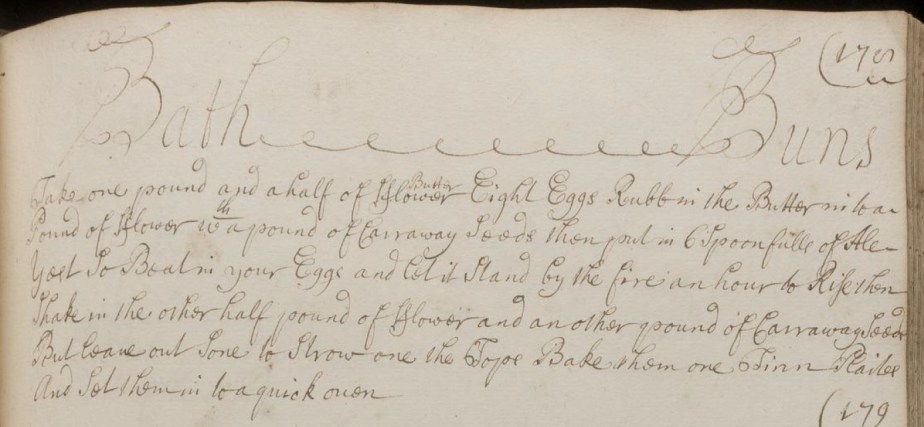 (178
Bath Buns
Take one pound and a half of fflower Butter Eight Eggs Rubb in the Butter in to a
Pound of fflower wth a pound of Carraway Seeds then put in 6 Spoonfulls of Ale
Yest So Beat in your Eggs and let it Stand by the fire an hour to Rise then
Shake in the other half pound of fflower and an other pound of Carraway Seeds
But leave out Sone to Strow one the Tope Bake them one Tinn Plaites
And Set them in to a quick oven
(179